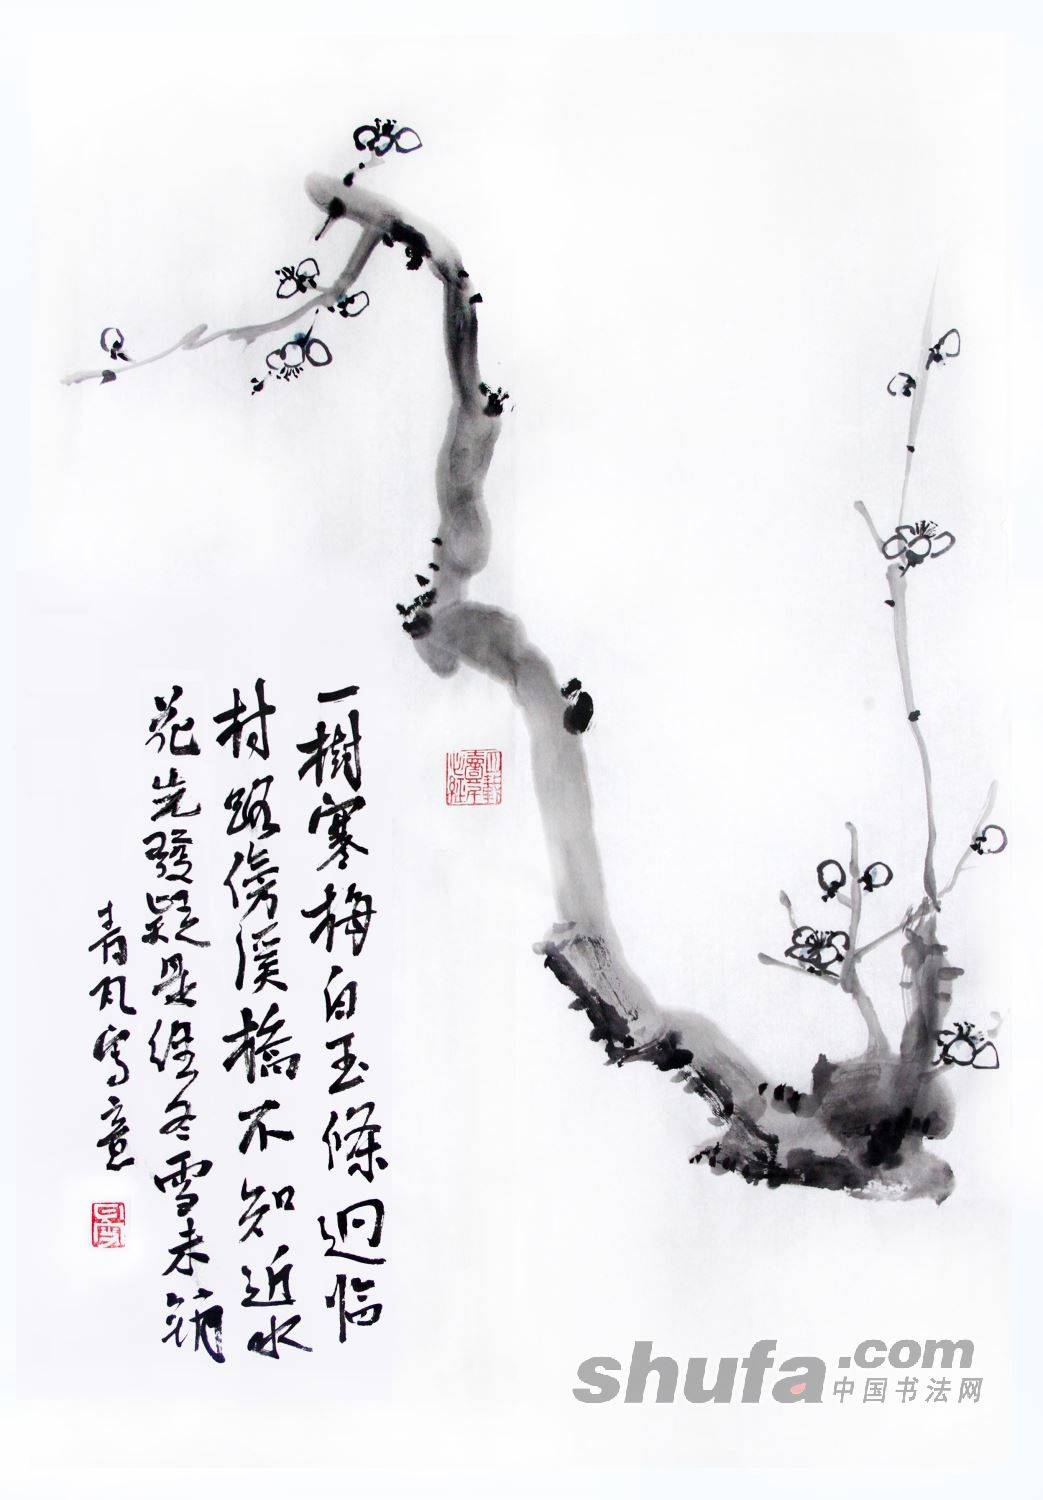 一樹寒梅白玉條迥臨
村路傍溪橋不知近水
花先發疑是經冬雪未銷
青風寫意
shufa.com
中国书法网